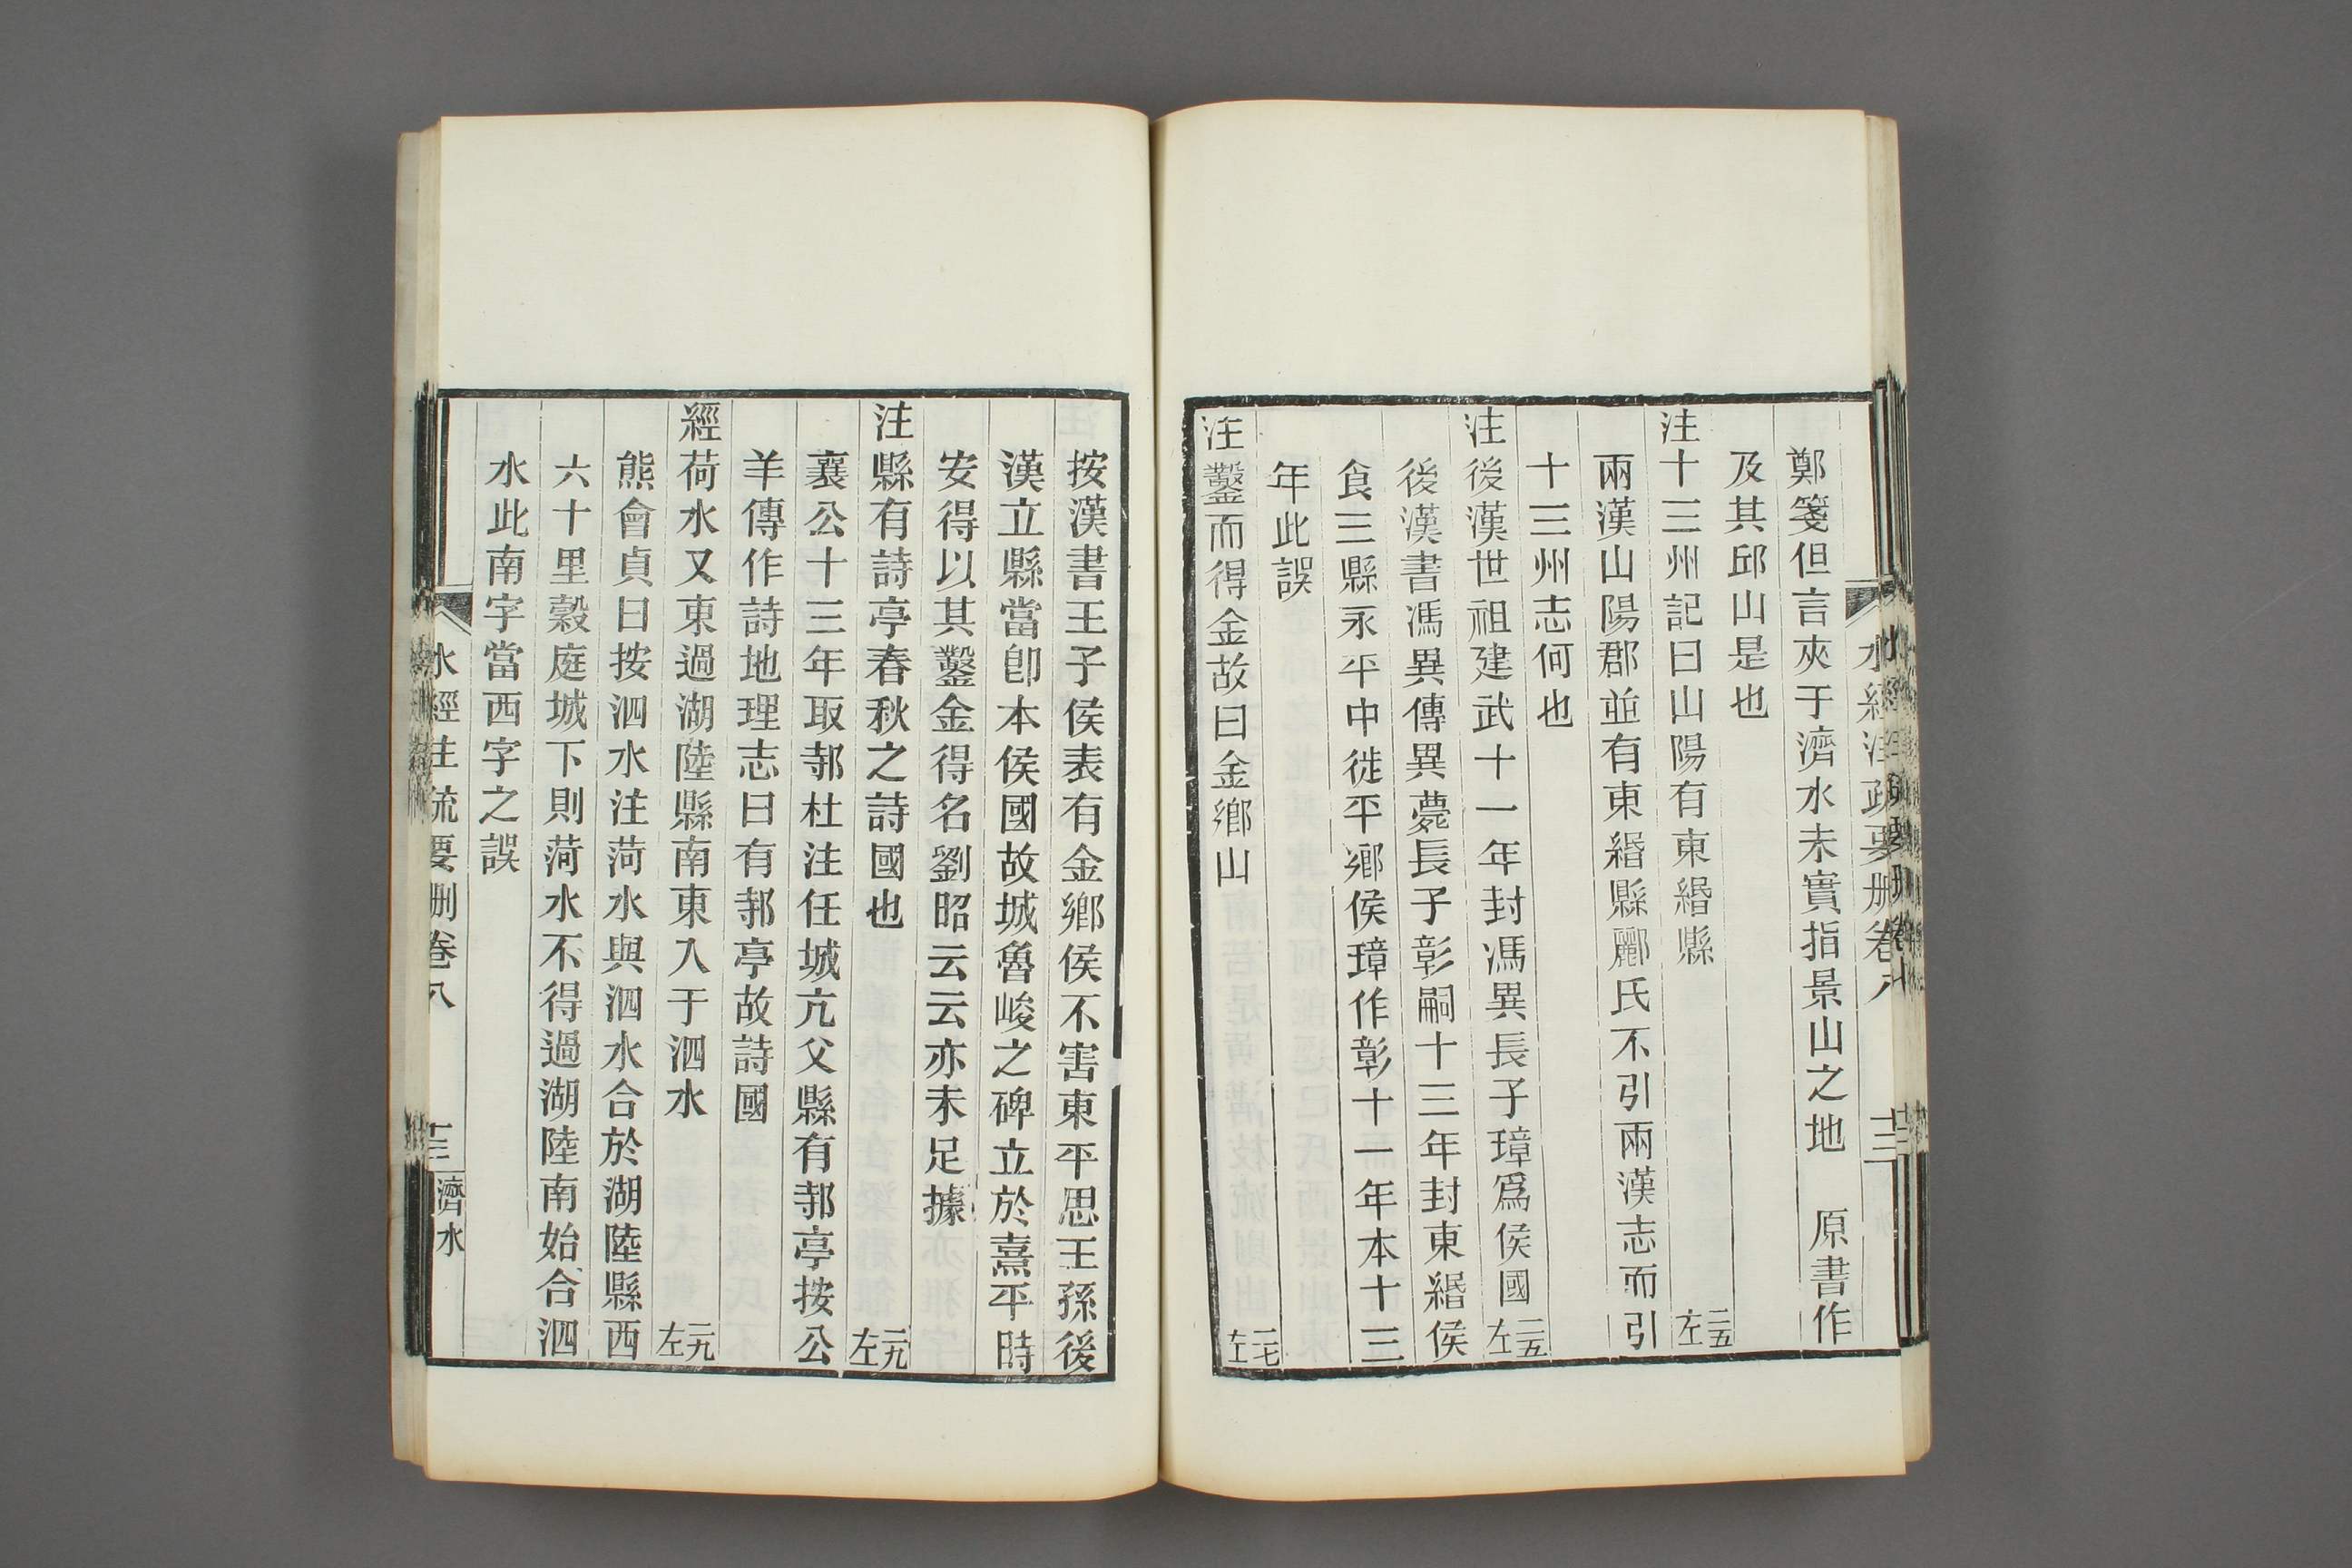 水經注疏要刪卷八　十二
鄭箋但言夾于濟水未實指景山之地　原書作
及其邱山是也
注十三州記曰山陽有東緡縣　二五左
兩漢山陽郡並有東緡縣酈氏不引兩漢志而引
十三州志何也
注後漢世祖建武十一年封馮異長子璋爲侯國　二五左
後漢書馮異傳異薨長子彰嗣十三年封東緡侯
食三縣永平中徙平鄉侯璋作彰十一年本十三
年此誤
注鑿而得金故曰金鄉山　二七左
按漢書王子侯表有金鄉侯不害東平思王孫後
漢立縣當卽本侯國故城魯峻之碑立於熹平時
安得以其鑿金得名劉昭云云亦未足據
注縣有詩亭春秋之詩國也　二九左
襄公十三年取邿杜注任城亢父縣有邿亭按公
羊傳作詩地理志曰有邿亭故詩國
經荷水又東過湖陸縣南東入于泗水　二九左
熊會貞曰按泗水注菏水與泗水合於湖陸縣西
六十里穀庭城下則菏水不得過湖陸南始合泗
水此南字當西字之誤
水經注疏要刪卷八　十三　濟水